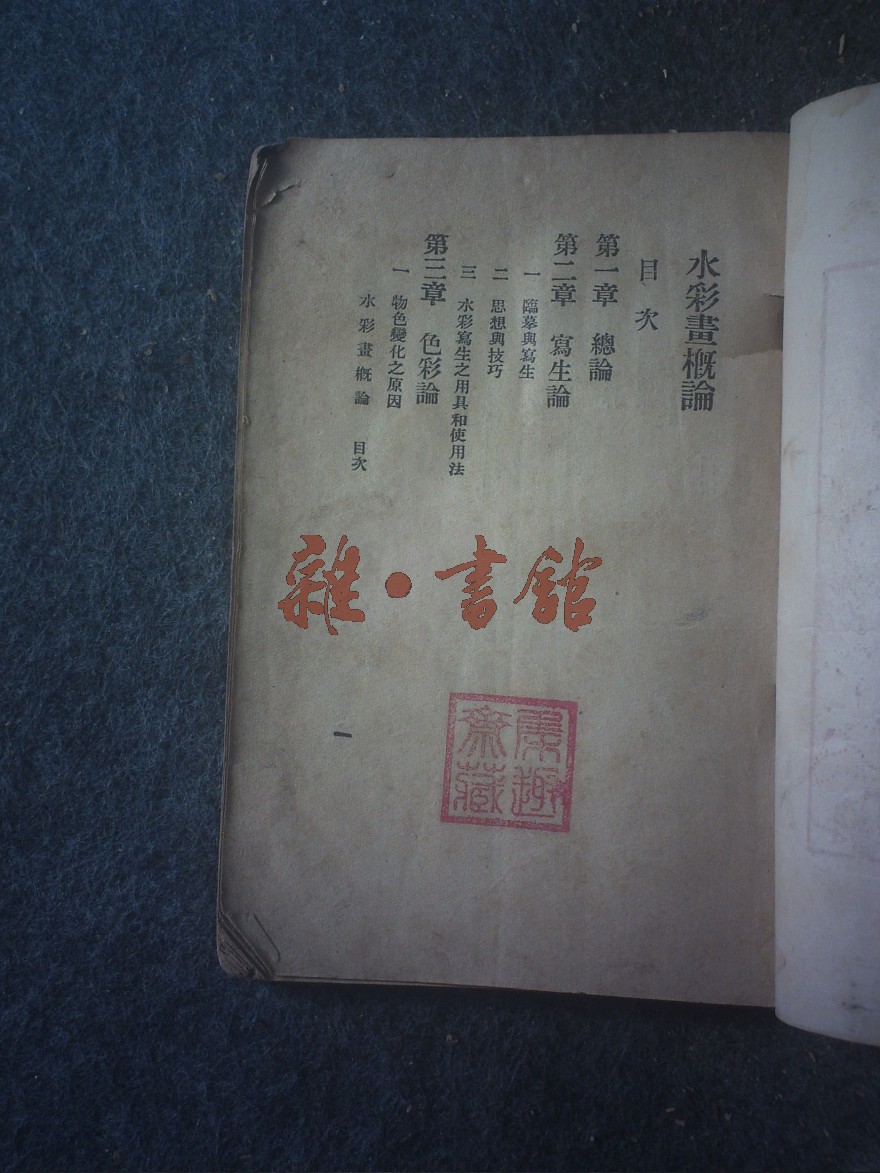 水彩畫概論
目次
第一章 總論
第二章 寫生論
一 臨摹與寫生
二 思想與技巧
三 水彩寫生之用具和使用法
第三章 色彩論
一 物色變化之原因
水彩畫概論 目次
一
雜・書館
齋藏